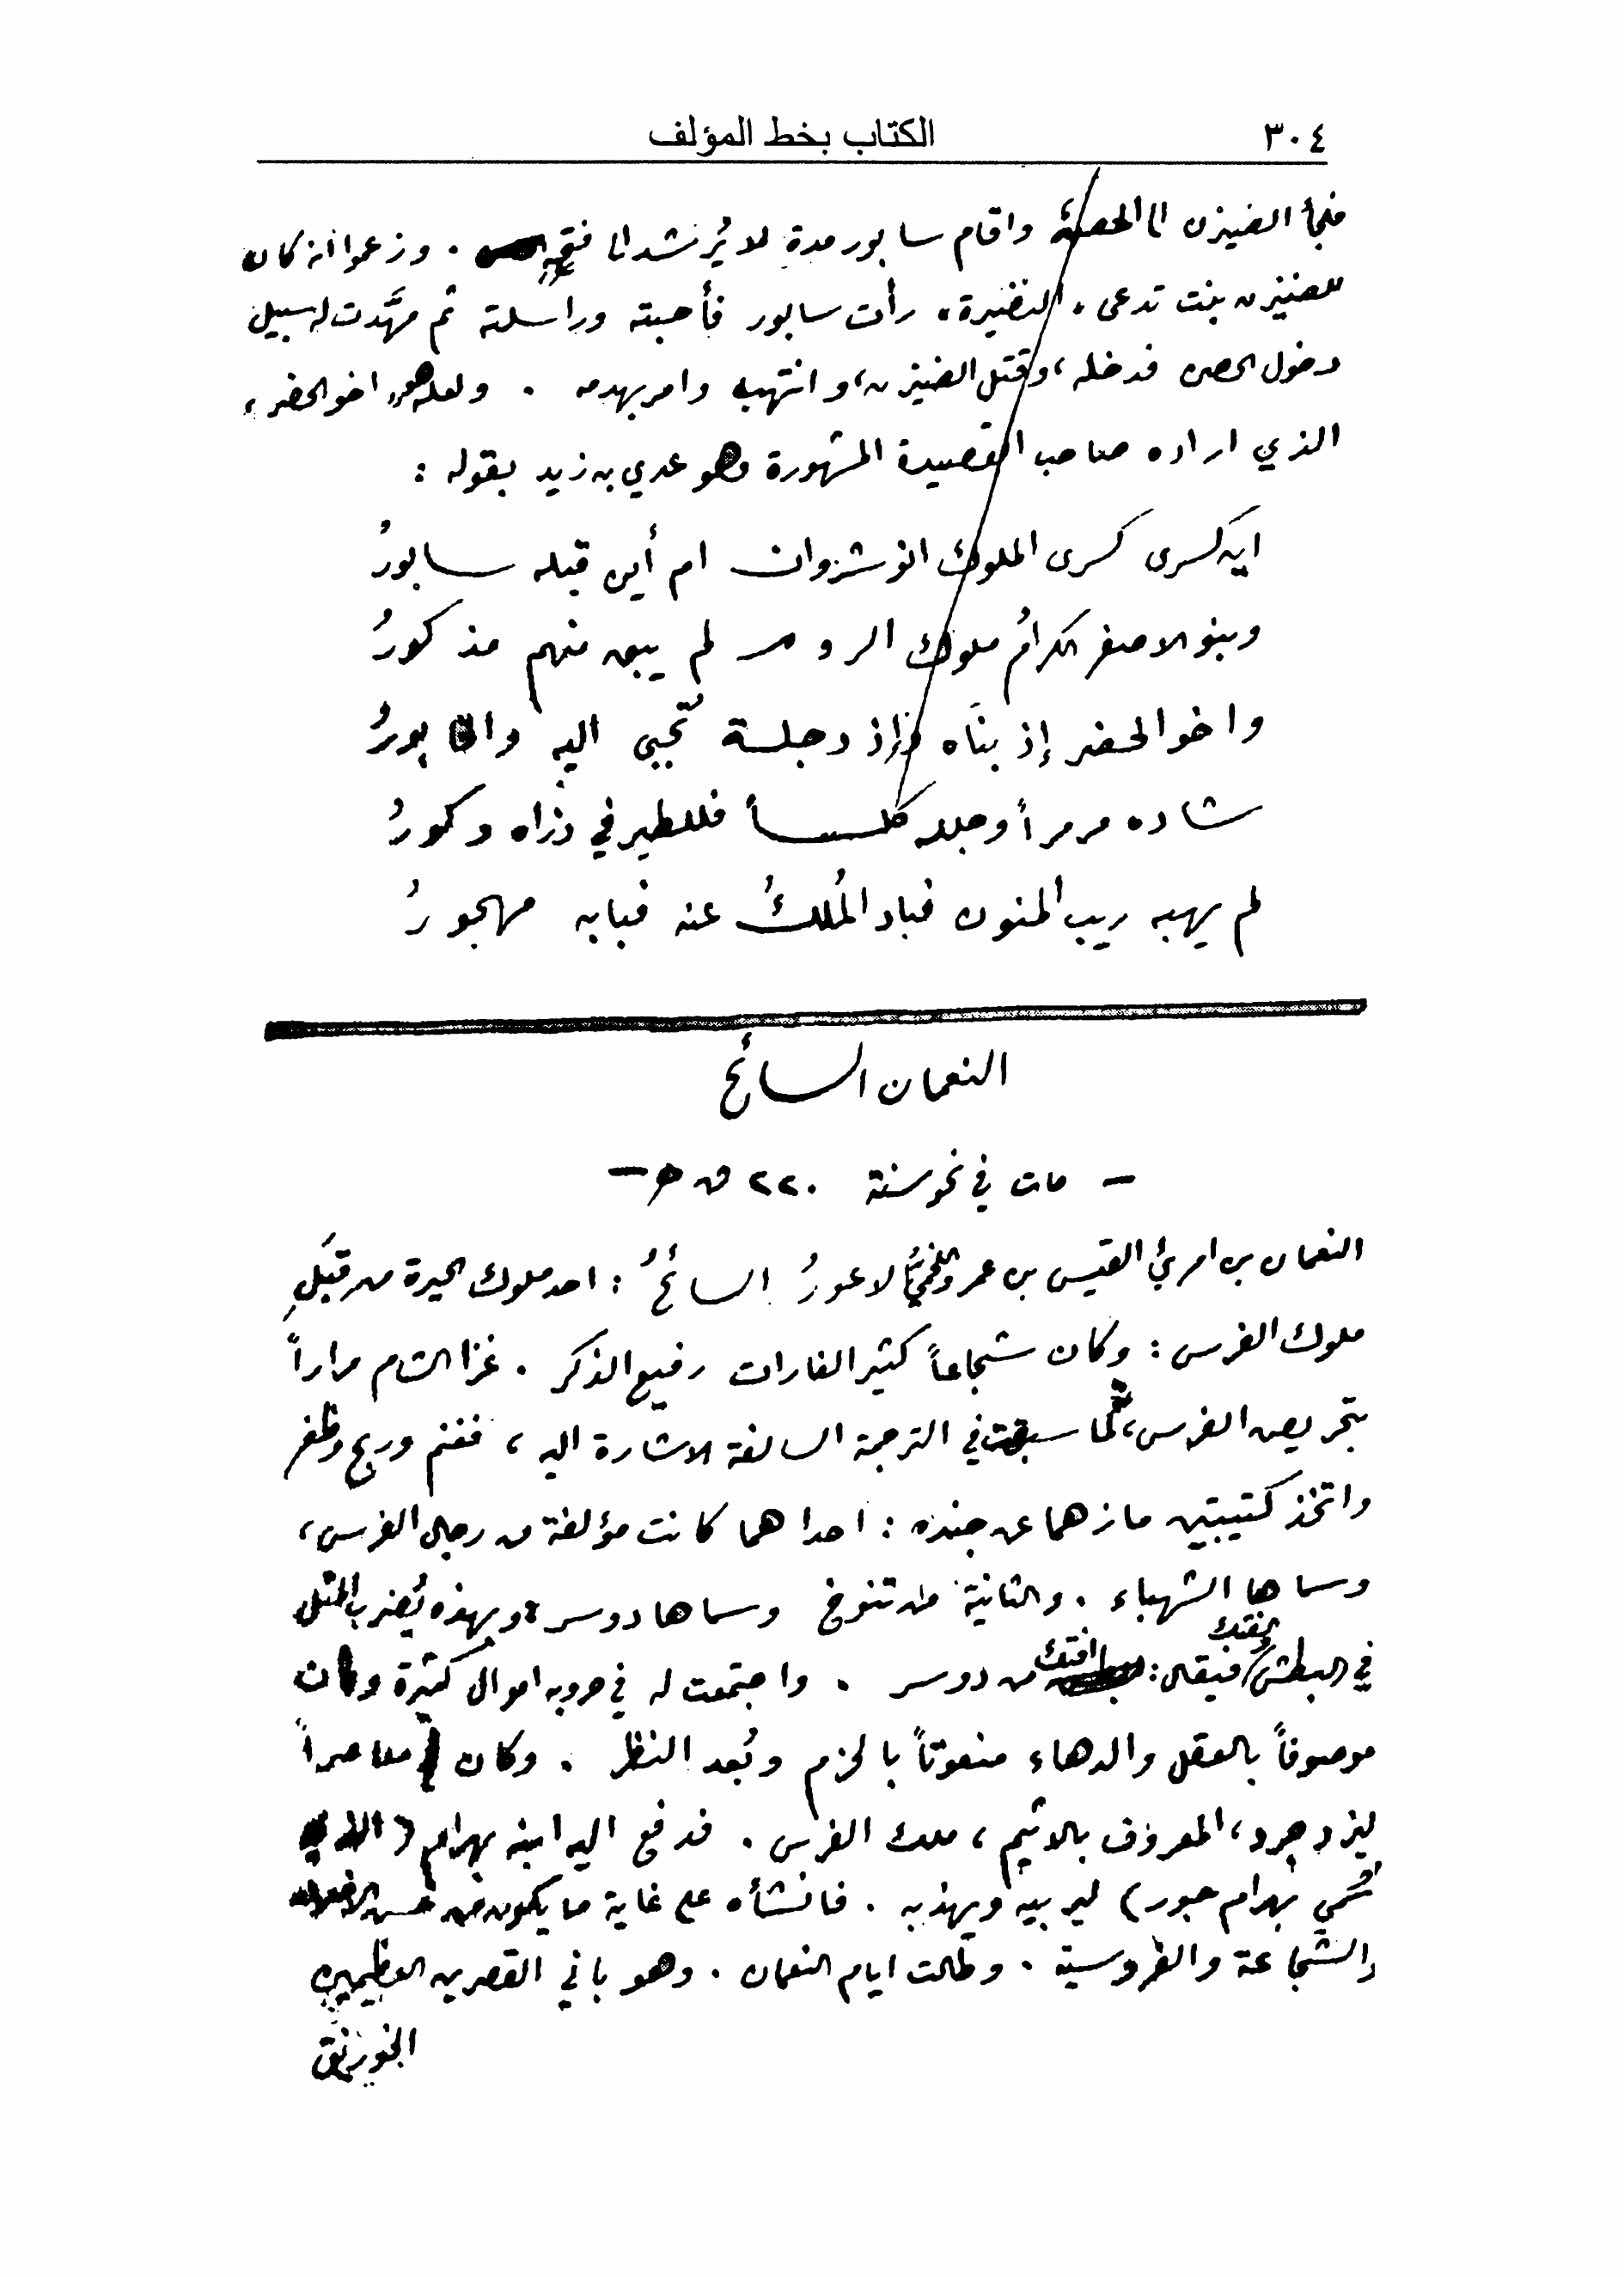 ٣٠٤ الكتاب بخط المؤلف
فلجأ الضيزن الى الحصن، واقام سابور مدة لا يُرشد الى فتحه . وزعموا أنه كان
للضيزن بنت تدعى « النضيرة » رأت سابور فأحبته وراسلته ثم مهَّدت له سبيل
دخول الحصن فدخله ، وقتل الضيزن ، وانتهبه وامر بهدمه . ولعله هو « اخو الحضر »
الذي اراده صاحب القصيدة المشهورة وهو عدي بن زيد بقوله :
اين كسرى كسرى الملوك انوشروان ام أين قبله سابورُ
وبنو الاصفر الكرامُ ملوك الروم لم يبق منهم مذكورُ
واخو الحضر إذ بنَاه وإذ دجلة تُجبى اليه والخابورُ
شاده مرمراً وجلله كلساً فللطير في ذراه وكورُ
لم يهبه ريب المنون فباد المُلكُ عنه فبابه مهجورُ
النعمان السائح
— مات في نحو سنة ٢٢٠ ق هـ —
النعمان بن امرئ القيس بن عمرو اللخميُّ الاعورُ السائحُ : احد ملوك الحيرة من قِبَلِ
ملوك الفرس : وكان شجاعاً كثير الغارات رفيع الذكر . غزا الشام مراراً
بتحريض الفرس ، كما سبقت في الترجمة السالفة الاشارة اليه ، فغنم وربح وظفر
واتخذ كتيبتين مازهما عن جنده : احداهما كانت مؤلفة من رجال الفرس ،
وسماها الشهباء . والثانية من تنوخ وسماها دوسر « وبهذه يُضرب المثل
في البطش والفتك فيقال : افتك من دوسر . واجتمعت له في حروبه اموال كثيرة وكان
موصوفاً بالعقل والدهاء منعوتاً بالحزم وبُعد النظر . وكان معاصراً
ليزدجرد ، المعروف بالاثيم ، ملك الفرس . فدفع اليه ابنه بهرام ( الذي
سُمي بهرام جور ) ليربيه ويهذبه . فانشأه على غاية ما يكون من حسن الاخلاق
والشجاعة والفروسية . وطالت ايام النعمان . وهو باني القصرين العظيمين
الخورنق